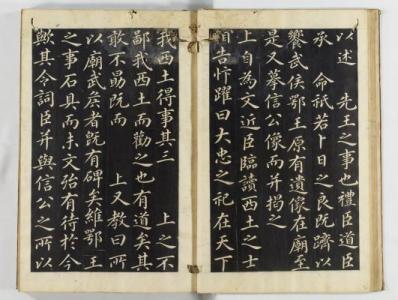 以述 先王之事也禮臣道臣
承 命祇若卜日之良既躋以
饗武侯鄂王原有遺像在廟至
是又摹信公像而并增之
上自為文近臣臨讀西土之士
相告忭躍曰大忠之祀在天下
我西土得事其三 上之不
鄙我西土而勸之也有道矣其
敢不勗既而 上又教曰所
以廟武矦者既有碑矣維鄂王
之事石具而未文殆有待於今
歟其令詞臣并與信公之所以